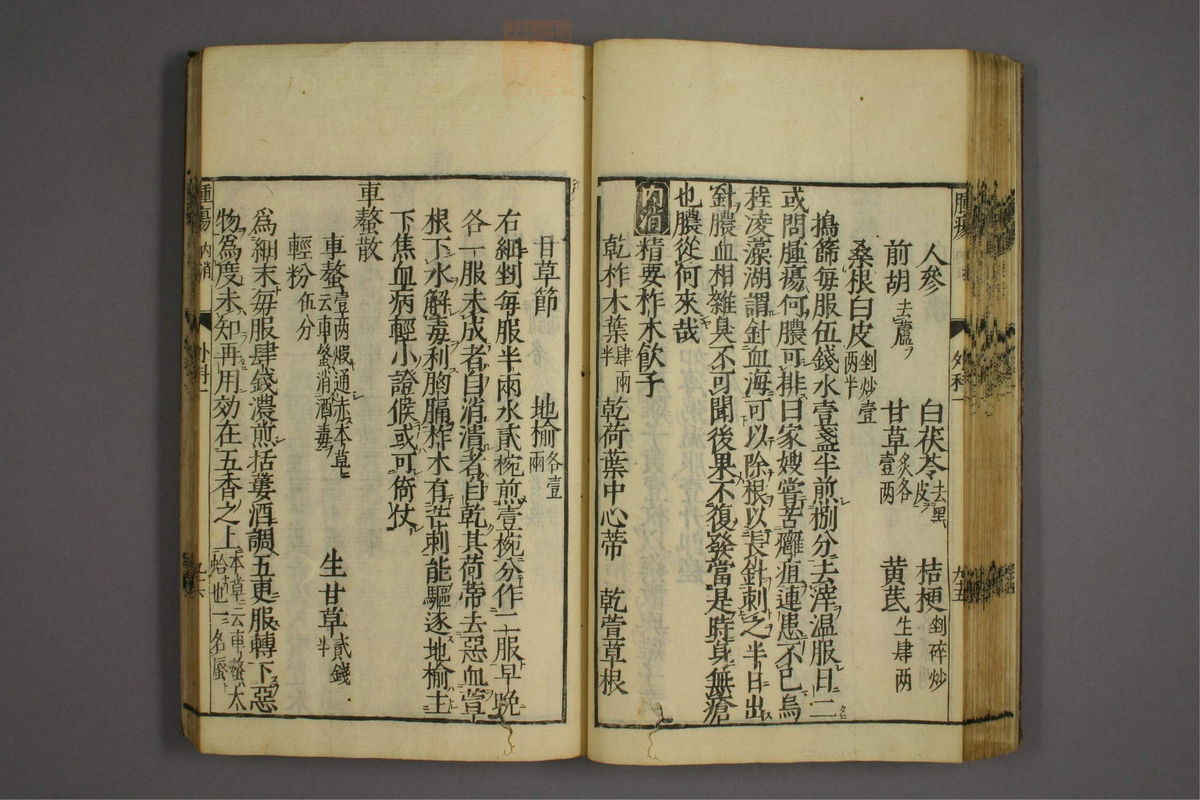 人參　白茯苓去黑皮　桔梗剉碎炒
前胡去蘆　甘草炙各壹兩　黄芪生肆两
桑根白皮剉炒壹两半
搗篩每服伍錢水壹盞半煎捌分去滓温服日二
或問腫瘍何膿可排曰家嫂嘗苦癰疽連患不已烏
程凌藻湖謂針血海可以除根以長針刺之半日出
針膿血相雜臭不可聞後果不復發當是時身無瘡
也膿從何來哉
内消 精要柞木飲子
乾柞木葉肆兩半　乾荷葉中心蒂　乾萱草根
腫瘍　外科一　九十五
甘草節　地榆各壹兩
右細剉每服半兩水貳椀煎壹椀分作二服早晚
各一服未成者自消潰者自乾其荷蒂去惡血萱
根下水解毒利胸膈柞木有芒刺能驅逐地榆主
下焦血病輕小證候或可倚仗
車螯散
車螯壹两煆通赤本草云車螯消酒毒　生甘草貳錢半
輕粉伍分
爲細末每服肆錢濃煎括蔞酒調五更服轉下惡
物爲度未知再用効在五香之上本草云車螯大蛤也一名蜃
腫瘍内消　外科一　九十六